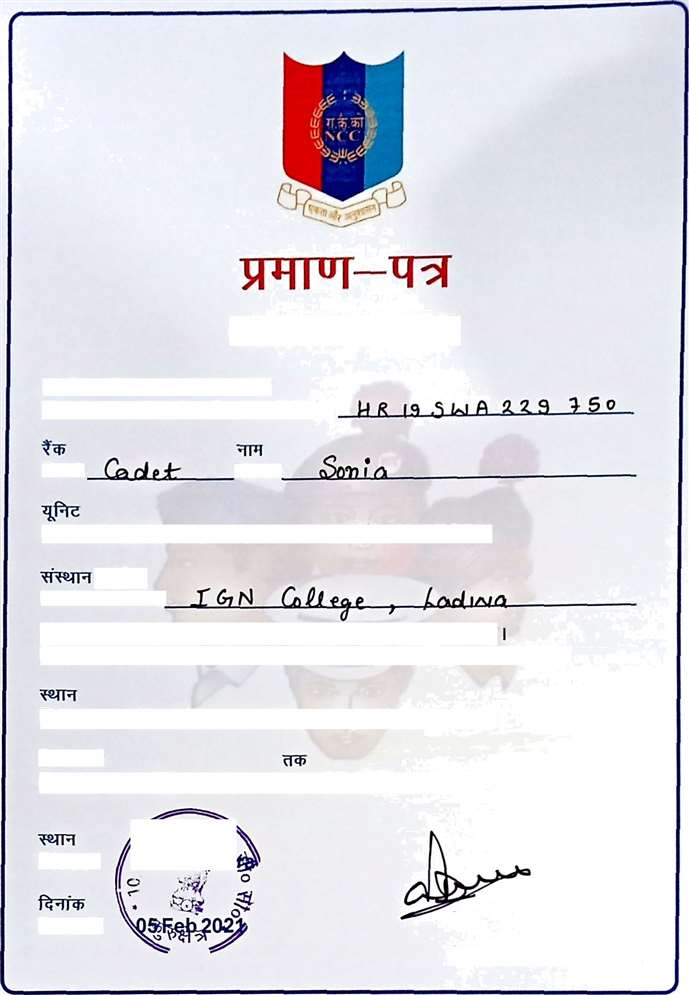 रा.कै.कोर
NCC
एकता और अनुशासन
प्रमाण—पत्र
HR 19 SWA 229 750
रैंक Cadet नाम Sonia
यूनिट
संस्थान
IGN College, Ladwa
।
स्थान
तक
स्थान
दिनांक
10
05 Feb 2021
कुरुक्षेत्र